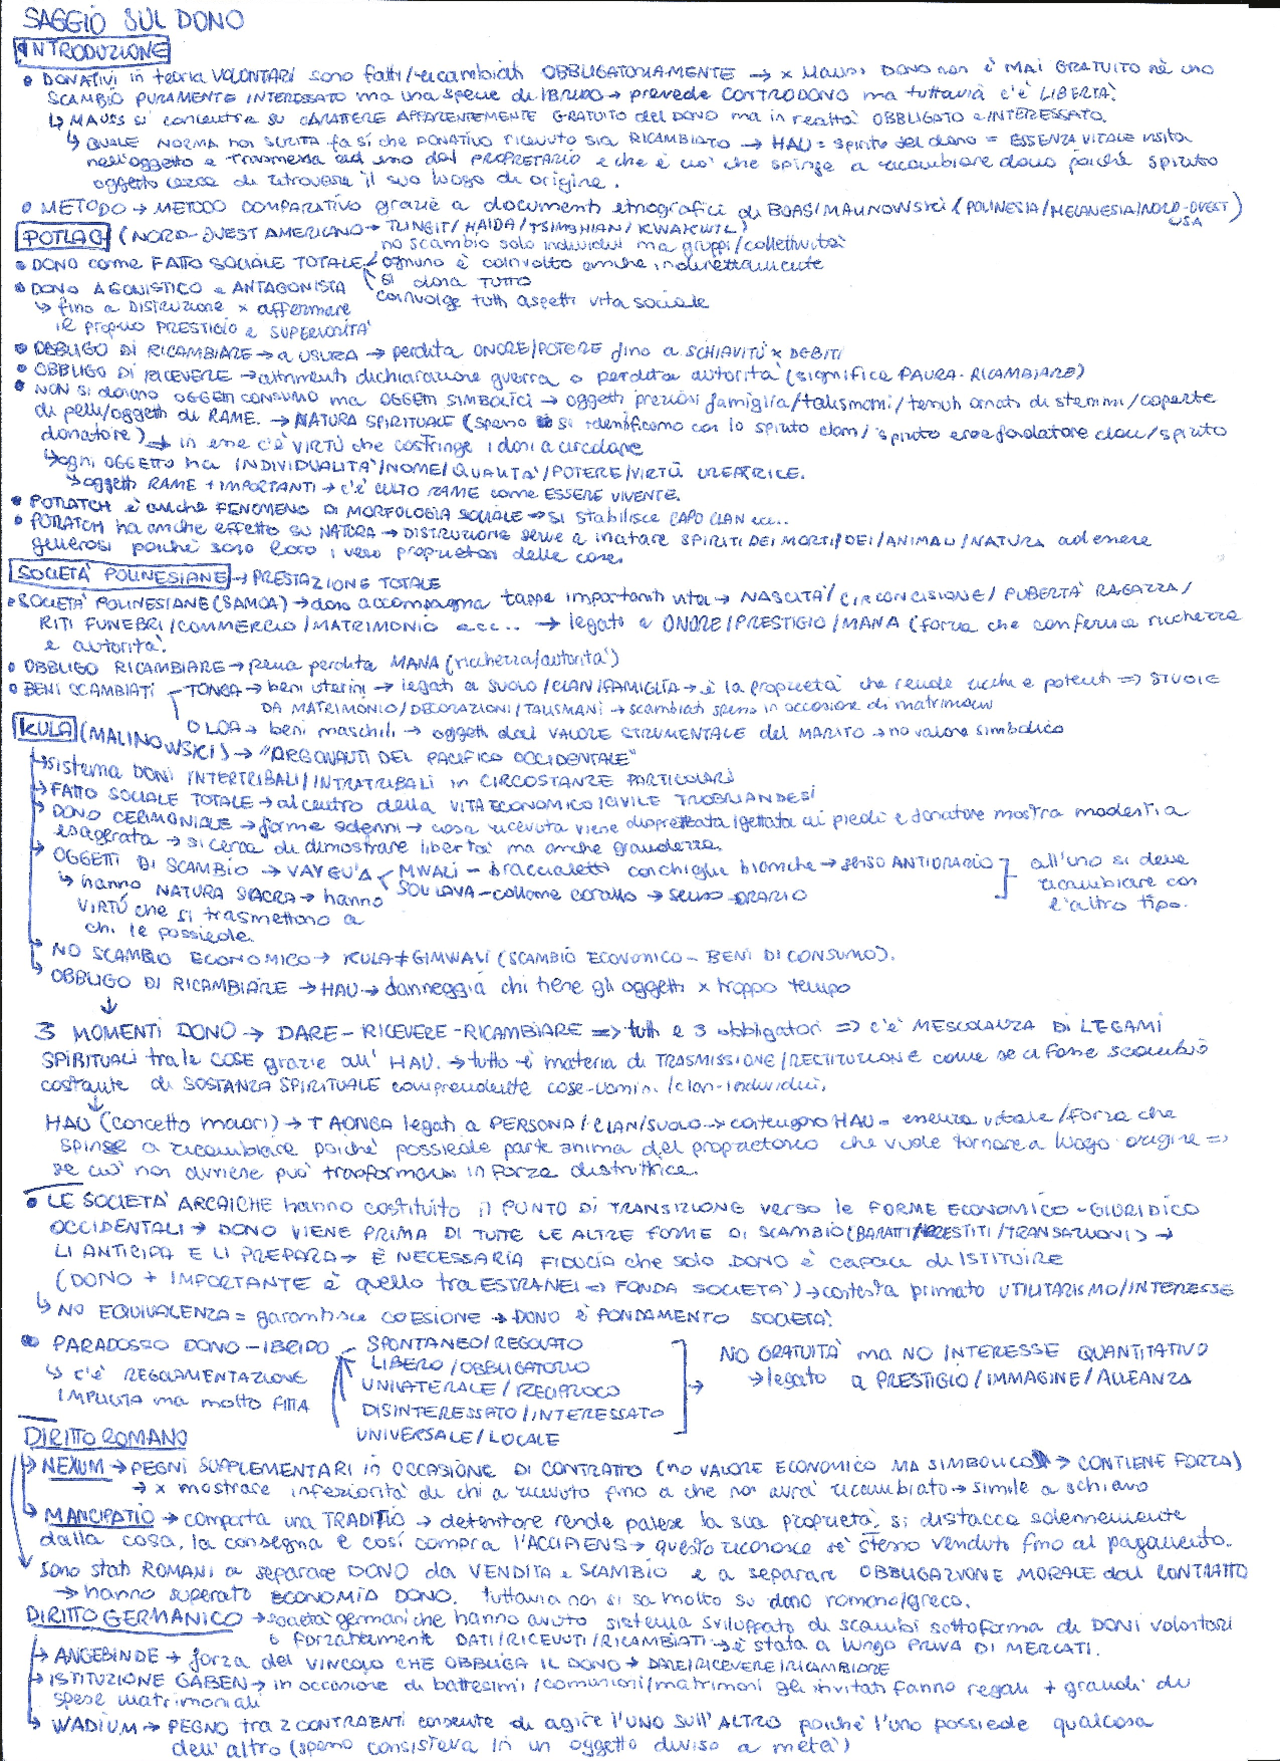 SAGGIO SUL DONO
INTRODUZIONE
• DONATIVI in teoria VOLONTARI sono fatti/ricambiati OBBLIGATORIAMENTE → x Mauss DONO non è MAI GRATUITO nè uno
SCAMBIO PURAMENTE INTERESSATO ma una specie di IBRIDO → prevede CONTRODONO ma tuttavia c'è LIBERTÀ.
↳ MAUSS si concentra su CARATTERE APPARENTEMENTE GRATUITO del DONO ma in realtà OBBLIGATO e INTERESSATO.
↳ QUALE NORMA non SCRITTA fa sí che DONATIVO ricevuto sia RICAMBIATO → HAU = spirito del dono = ESSENZA VITALE insita
nell'oggetto e trasmessa ad esso dal PROPRIETARIO e che è ciò che spinge a ricambiare dono poichè spirito
oggetto cerca di ritrovare il suo luogo di origine.
• METODO → METODO COMPARATIVO grazie a documenti etnografici di BOAS/MALINOWSKI (POLINESIA/MELANESIA/NORD-OVEST
USA)
POTLACH (NORD-OVEST AMERICANO → TLINGIT/HAIDA/TSIMSHIAN/KWAKIUTL)
no scambio solo individui ma gruppi/collettività
• DONO come FATTO SOCIALE TOTALE ognuno è coinvolto anche indirettamente
• DONO AGONISTICO e ANTAGONISTA si dona TUTTO
coinvolge tutti aspetti vita sociale
↳ fino a DISTRUZIONE x affermare
il proprio PRESTIGIO e SUPERIORITÀ
• OBBLIGO DI RICAMBIARE → a USURA → perdita ONORE/POTERE fino a SCHIAVITÙ x DEBITI
• OBBLIGO DI RICEVERE → altrimenti dichiarazione guerra o perdita autorità (significa PAURA-RICAMBIARE)
• NON si donano OGGETTI CONSUMO ma OGGETTI SIMBOLICI → oggetti preziosi famiglia/talismani/tessuti ornati di stemmi/coperte
di pelli/oggetti di RAME. → NATURA SPIRITUALE (spesso si identificano con lo spirito clan/spirito eroe fondatore clan/spirito
donatore) → in esse c'è VIRTÙ che costringe i doni a circolare
↳ ogni OGGETTO ha INDIVIDUALITÀ/NOME/QUALITÀ/POTERE/VIRTÙ CREATRICE.
↳ oggetti RAME + IMPORTANTI → c'è CULTO RAME come ESSERE VIVENTE.
• POTLATCH è anche FENOMENO DI MORFOLOGIA SOCIALE → si stabilisce CAPO CLAN ecc..
• POTLATCH ha anche effetto su NATURA → DISTRUZIONE serve a incitare SPIRITI DEI MORTI/DEI/ANIMALI/NATURA ad essere
generosi poichè sono loro i veri proprietari delle cose.
SOCIETÀ POLINESIANE → PRESTAZIONE TOTALE
• SOCIETÀ POLINESIANE (SAMOA) → dono accompagna tappe importanti vita → NASCITA/CIRCONCISIONE/PUBERTÀ RAGAZZA/
RITI FUNEBRI/COMMERCIO/MATRIMONIO ecc.. → legato a ONORE/PRESTIGIO/MANA (forza che conferisce ricchezza
e autorità.
• OBBLIGO RICAMBIARE → pena perdita MANA (ricchezza/autorità)
• BENI SCAMBIATI TONGA → beni uterini → legati a SUOLO/CLAN/FAMIGLIA → è la proprietà che rende ricchi e potenti => STUOIE
DA MATRIMONIO/DECORAZIONI/TALISMANI → scambiati spesso in occasione di matrimoni
OLOA → beni maschili → oggetti dal VALORE STRUMENTALE del MARITO → no valore simbolico
KULA (MALINOWSKI) → "ARGONAUTI DEL PACIFICO OCCIDENTALE"
↳ sistema DONI INTERTRIBALI/INTRATRIBALI in CIRCOSTANZE PARTICOLARI
↳ FATTO SOCIALE TOTALE → al centro della VITA ECONOMICO/CIVILE TROBRIANDESI
↳ DONO CERIMONIALE → forme solenni → cosa ricevuta viene disprezzata/gettata ai piedi e donatore mostra modestia
esagerata → si cerca di dimostrare libertà ma anche grandezza.
↳ OGGETTI DI SCAMBIO → VAYGU'A MWALI - braccialetti conchiglie bianche → SENSO ANTIORARIO
SOULAVA - collane corallo → SENSO ORARIO
all'uno si deve
ricambiare con
l'altro tipo.
↳ hanno NATURA SACRA → hanno
VIRTÙ che si trasmettono a
chi le possiede.
↳ NO SCAMBIO ECONOMICO → KULA ≠ GIMWALI (SCAMBIO ECONOMICO - BENI DI CONSUMO).
↳ OBBLIGO DI RICAMBIARE → HAU → danneggia chi tiene gli oggetti x troppo tempo
↓
3 MOMENTI DONO → DARE - RICEVERE - RICAMBIARE => tutti e 3 obbligatori => c'è MESCOLANZA DI LEGAMI
SPIRITUALI tra le COSE grazie all'HAU. → tutto è materia di TRASMISSIONE/RESTITUZIONE come se ci fosse scambio
costante di SOSTANZA SPIRITUALE comprendente cose-uomini/clan-individui.
↓
HAU (concetto maori) → TAONGA legati a PERSONA/CLAN/SUOLO → contengono HAU = essenza vitale/forza che
spinge a ricambiare poichè possiede parte anima del proprietario che vuole tornare a luogo origine =>
se ciò non avviene può trasformarsi in forza distruttrice.
• LE SOCIETÀ ARCAICHE hanno costituito il PUNTO DI TRANSIZIONE verso le FORME ECONOMICO-GIURIDICO
OCCIDENTALI → DONO VIENE PRIMA DI TUTTE LE ALTRE FORME DI SCAMBIO (BARATTI/PRESTITI/TRANSAZIONI) →
LI ANTICIPA E LI PREPARA → È NECESSARIA FIDUCIA che solo DONO è capace di ISTITUIRE
(DONO + IMPORTANTE è quello tra ESTRANEI => FONDA SOCIETÀ) → contesta primato UTILITARISMO/INTERESSE
↳ NO EQUIVALENZA = garantisce COESIONE → DONO è FONDAMENTO SOCIETÀ.
• PARADOSSO DONO-IBRIDO SPONTANEO/REGOLATO
LIBERO/OBBLIGATORIO
UNILATERALE/RECIPROCO
DISINTERESSATO/INTERESSATO
UNIVERSALE/LOCALE
↳ c'è REGOLAMENTAZIONE
IMPLICITA ma molto FITTA
→ NO GRATUITÀ ma NO INTERESSE QUANTITATIVO
→ legato a PRESTIGIO/IMMAGINE/ALLEANZA
DIRITTO ROMANO
↳ NEXUM → PEGNI SUPPLEMENTARI in OCCASIONE DI CONTRATTO (no VALORE ECONOMICO MA SIMBOLICO → CONTIENE FORZA)
→ x mostrare inferiorità di chi a ricevuto fino a che non avrà ricambiato → simile a schiavo
↳ MANCIPATIO → comporta una TRADITIO → detentore rende palese la sua proprietà, si distacca solennemente
dalla cosa, la consegna e cosí compra l'ACCIPIENS → questo riconosce sè stesso venduto fino al pagamento.
↳ Sono stati ROMANI a separare DONO da VENDITA e SCAMBIO e a separare OBBLIGAZIONE MORALE dal CONTRATTO
→ hanno superato ECONOMIA DONO. Tuttavia non si sa molto su dono romano/greco.
DIRITTO GERMANICO → società germaniche hanno avuto sistema sviluppato di scambi sottoforma di DONI volontari
o forzatamente DATI/RICEVUTI/RICAMBIATI → è stata a lungo PRIVA DI MERCATI.
↳ ANGEBINDE → forza del VINCOLO CHE OBBLIGA IL DONO → DARE/RICEVERE/RICAMBIARE
↳ ISTITUZIONE GABEN → in occasione di battesimi/comunioni/matrimoni gli invitati fanno regali + grandi di
spese matrimoniali
↳ WADIUM → PEGNO tra 2 CONTRAENTI consente di agire l'UNO SULL'ALTRO poichè l'uno possiede qualcosa
dell'altro (spesso consisteva in un oggetto diviso a metà)